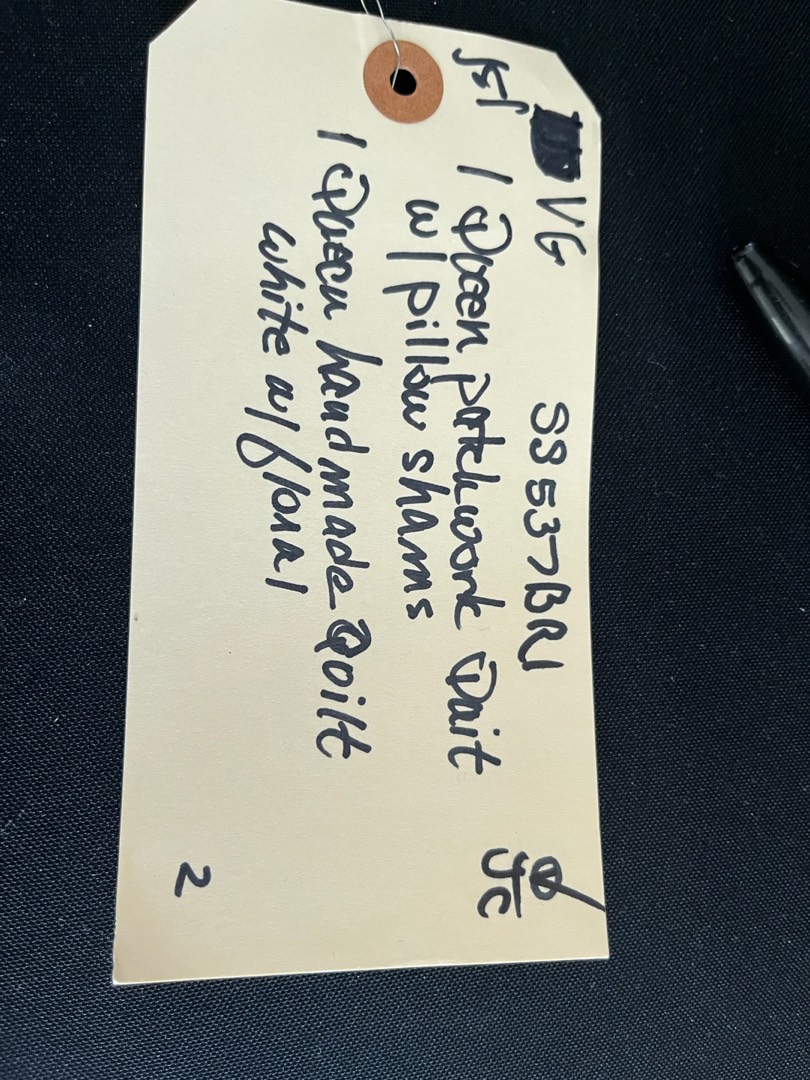 VG SS537BR1
1 Queen patchwork Quit
w/ pillow shams
JC
1 Queen handmade Quilt
white w/ floral
2